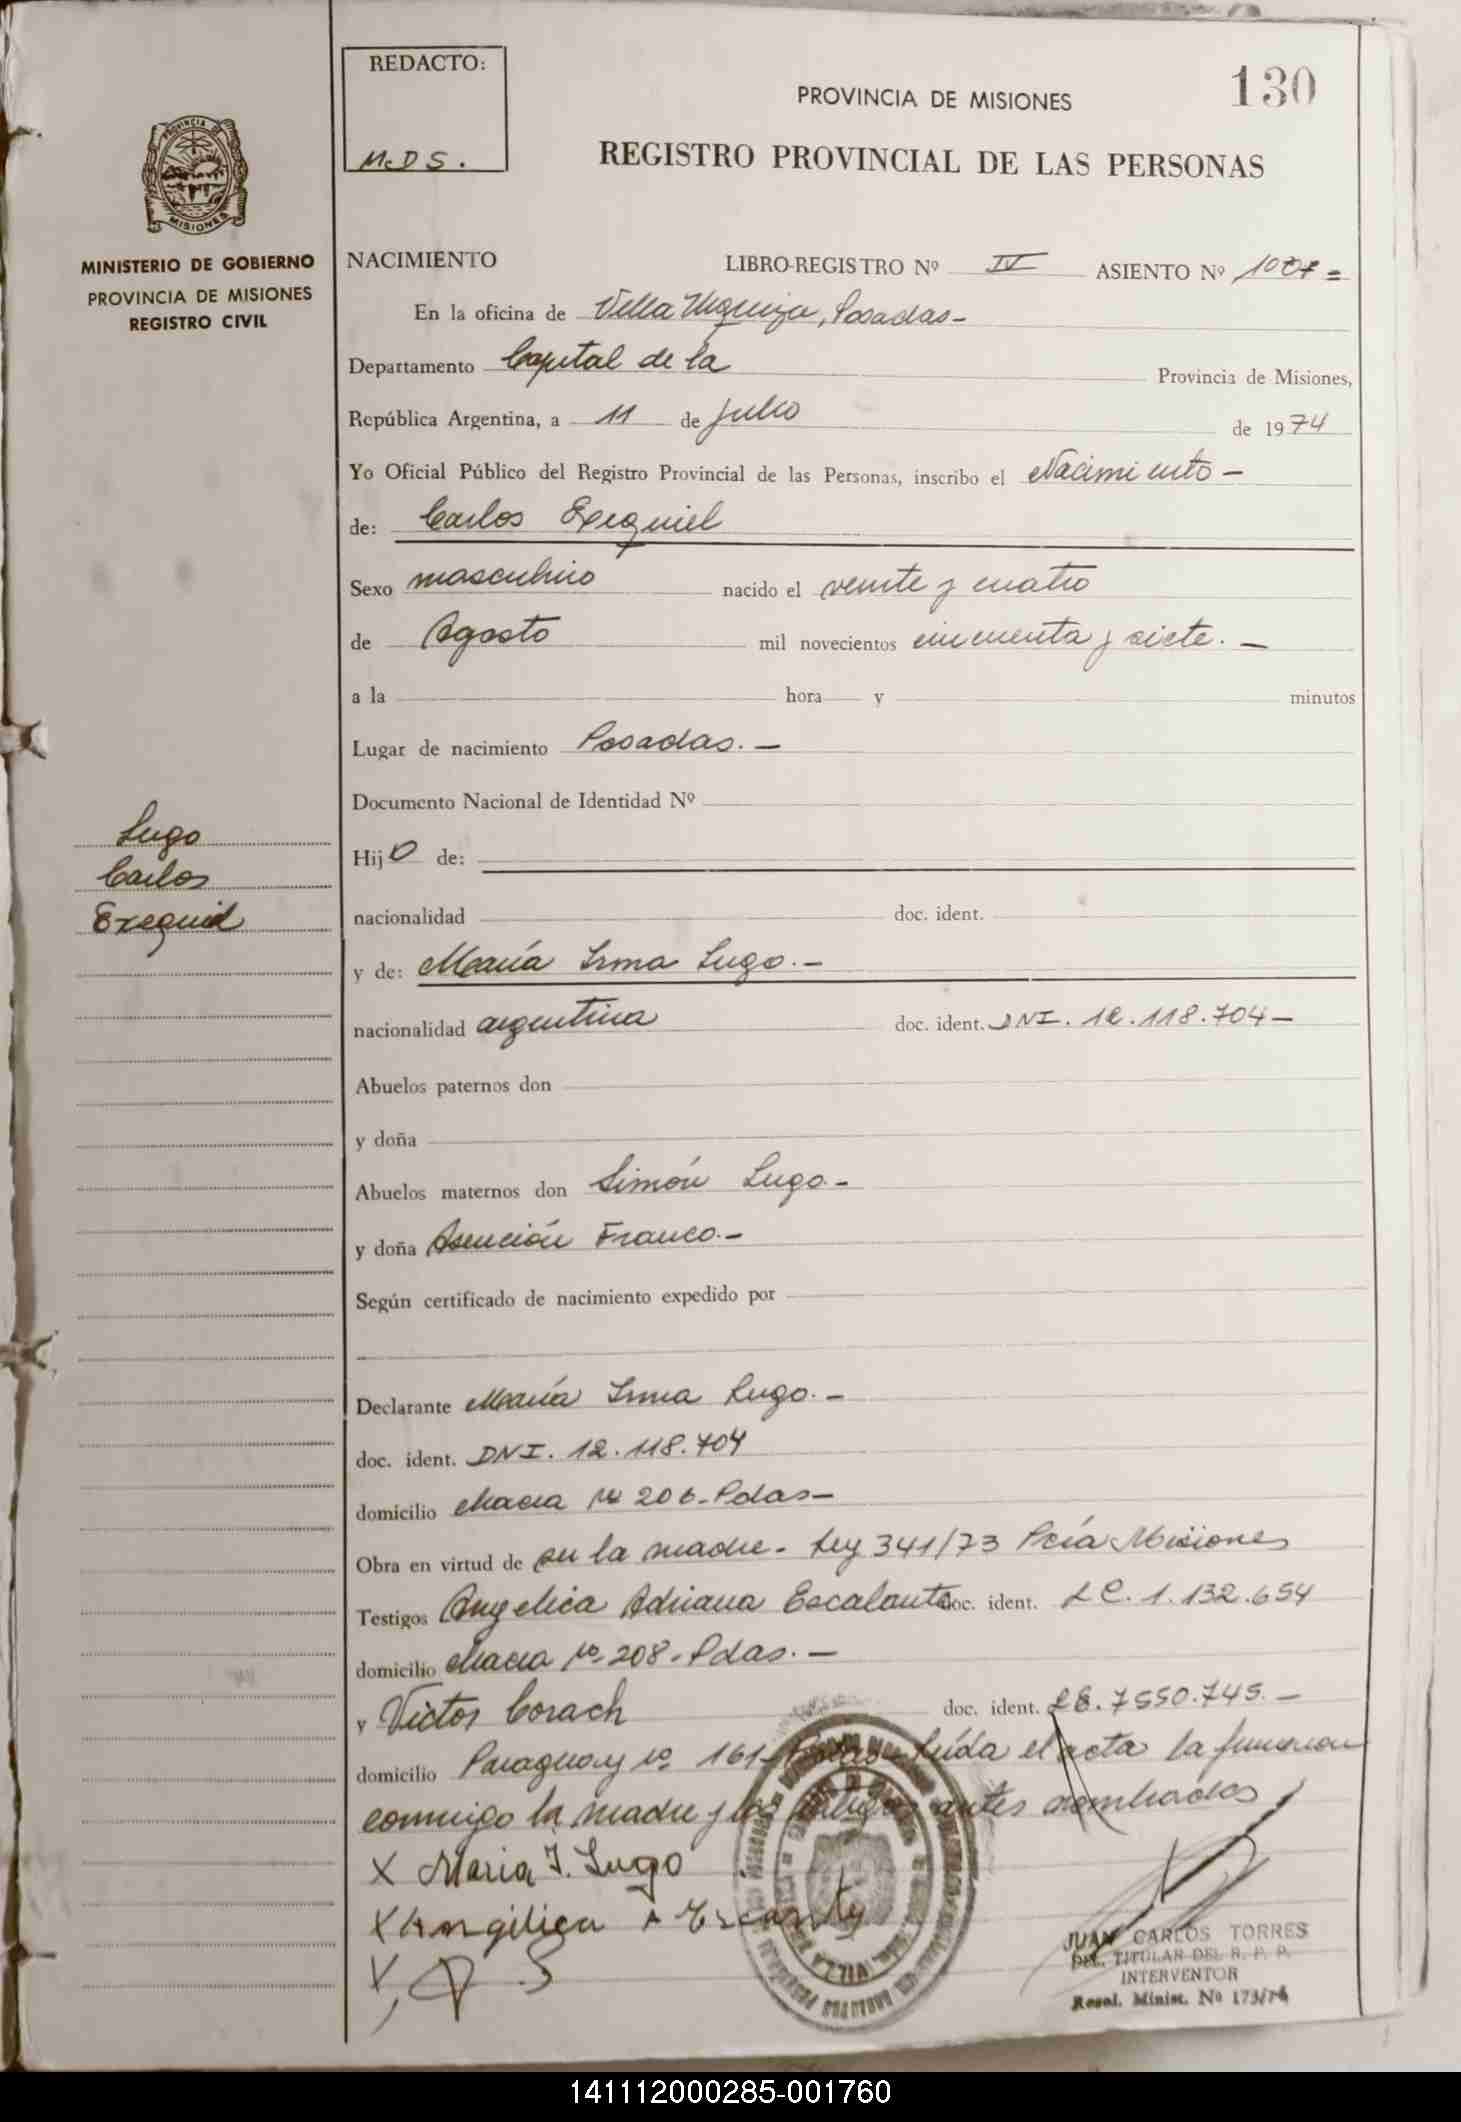 REDACTO:
M.D S.
130
PROVINCIA DE MISIONES
REGISTRO PROVINCIAL DE LAS PERSONAS
PROVINCIA DE
MISIONES
MINISTERIO DE GOBIERNO
PROVINCIA DE MISIONES
REGISTRO CIVIL
NACIMIENTO LIBRO-REGISTRO Nº IV ASIENTO Nº
En la oficina de Villa Urquiza, Posadas-
Departamento Capital de la Provincia de Misiones,
República Argentina, a 11 de Julio de 1974
Yo Oficial Público del Registro Provincial de las Personas, inscribo el Nacimiento -
de: Carlos Exequiel
Sexo masculino nacido el veinte y cuatro
de Agosto mil novecientos cincuenta y siete. -
a la hora y minutos
Lugar de nacimiento Posadas. -
Documento Nacional de Identidad Nº
Lugo
Carlos
Exequiel
Hijo de:
nacionalidad doc. ident.
y de: María Irma Lugo. -
nacionalidad argentina doc. ident. DNI. 12.118.704-
Abuelos paternos don
y doña
Abuelos maternos don Simón Lugo.-
y doña Asunción Franco.-
Según certificado de nacimiento expedido por
Declarante María Irma Lugo. -
doc. ident. DNI. 12.118.704
domicilio Nº 206-Pdas-
Obra en virtud de ser la madre - Ley 341/73 Pcía Misiones
Testigos Angelica Adriana Escalante doc. ident. LC. 1.132.654
domicilio Nº 208-Pdas. -
y Victor Corach doc. ident. 7550.745. -
domicilio Paraguay Nº 161- Pdas- Leída el acta la firman
conmigo la madre y los testigos antes nombrados
X Maria I. Lugo
X Angélica A
X
JUAN CARLOS TORRES
DEL. TITULAR DEL R. P. P.
INTERVENTOR
Resol. Minist. Nº 173/74
141112000285-001760